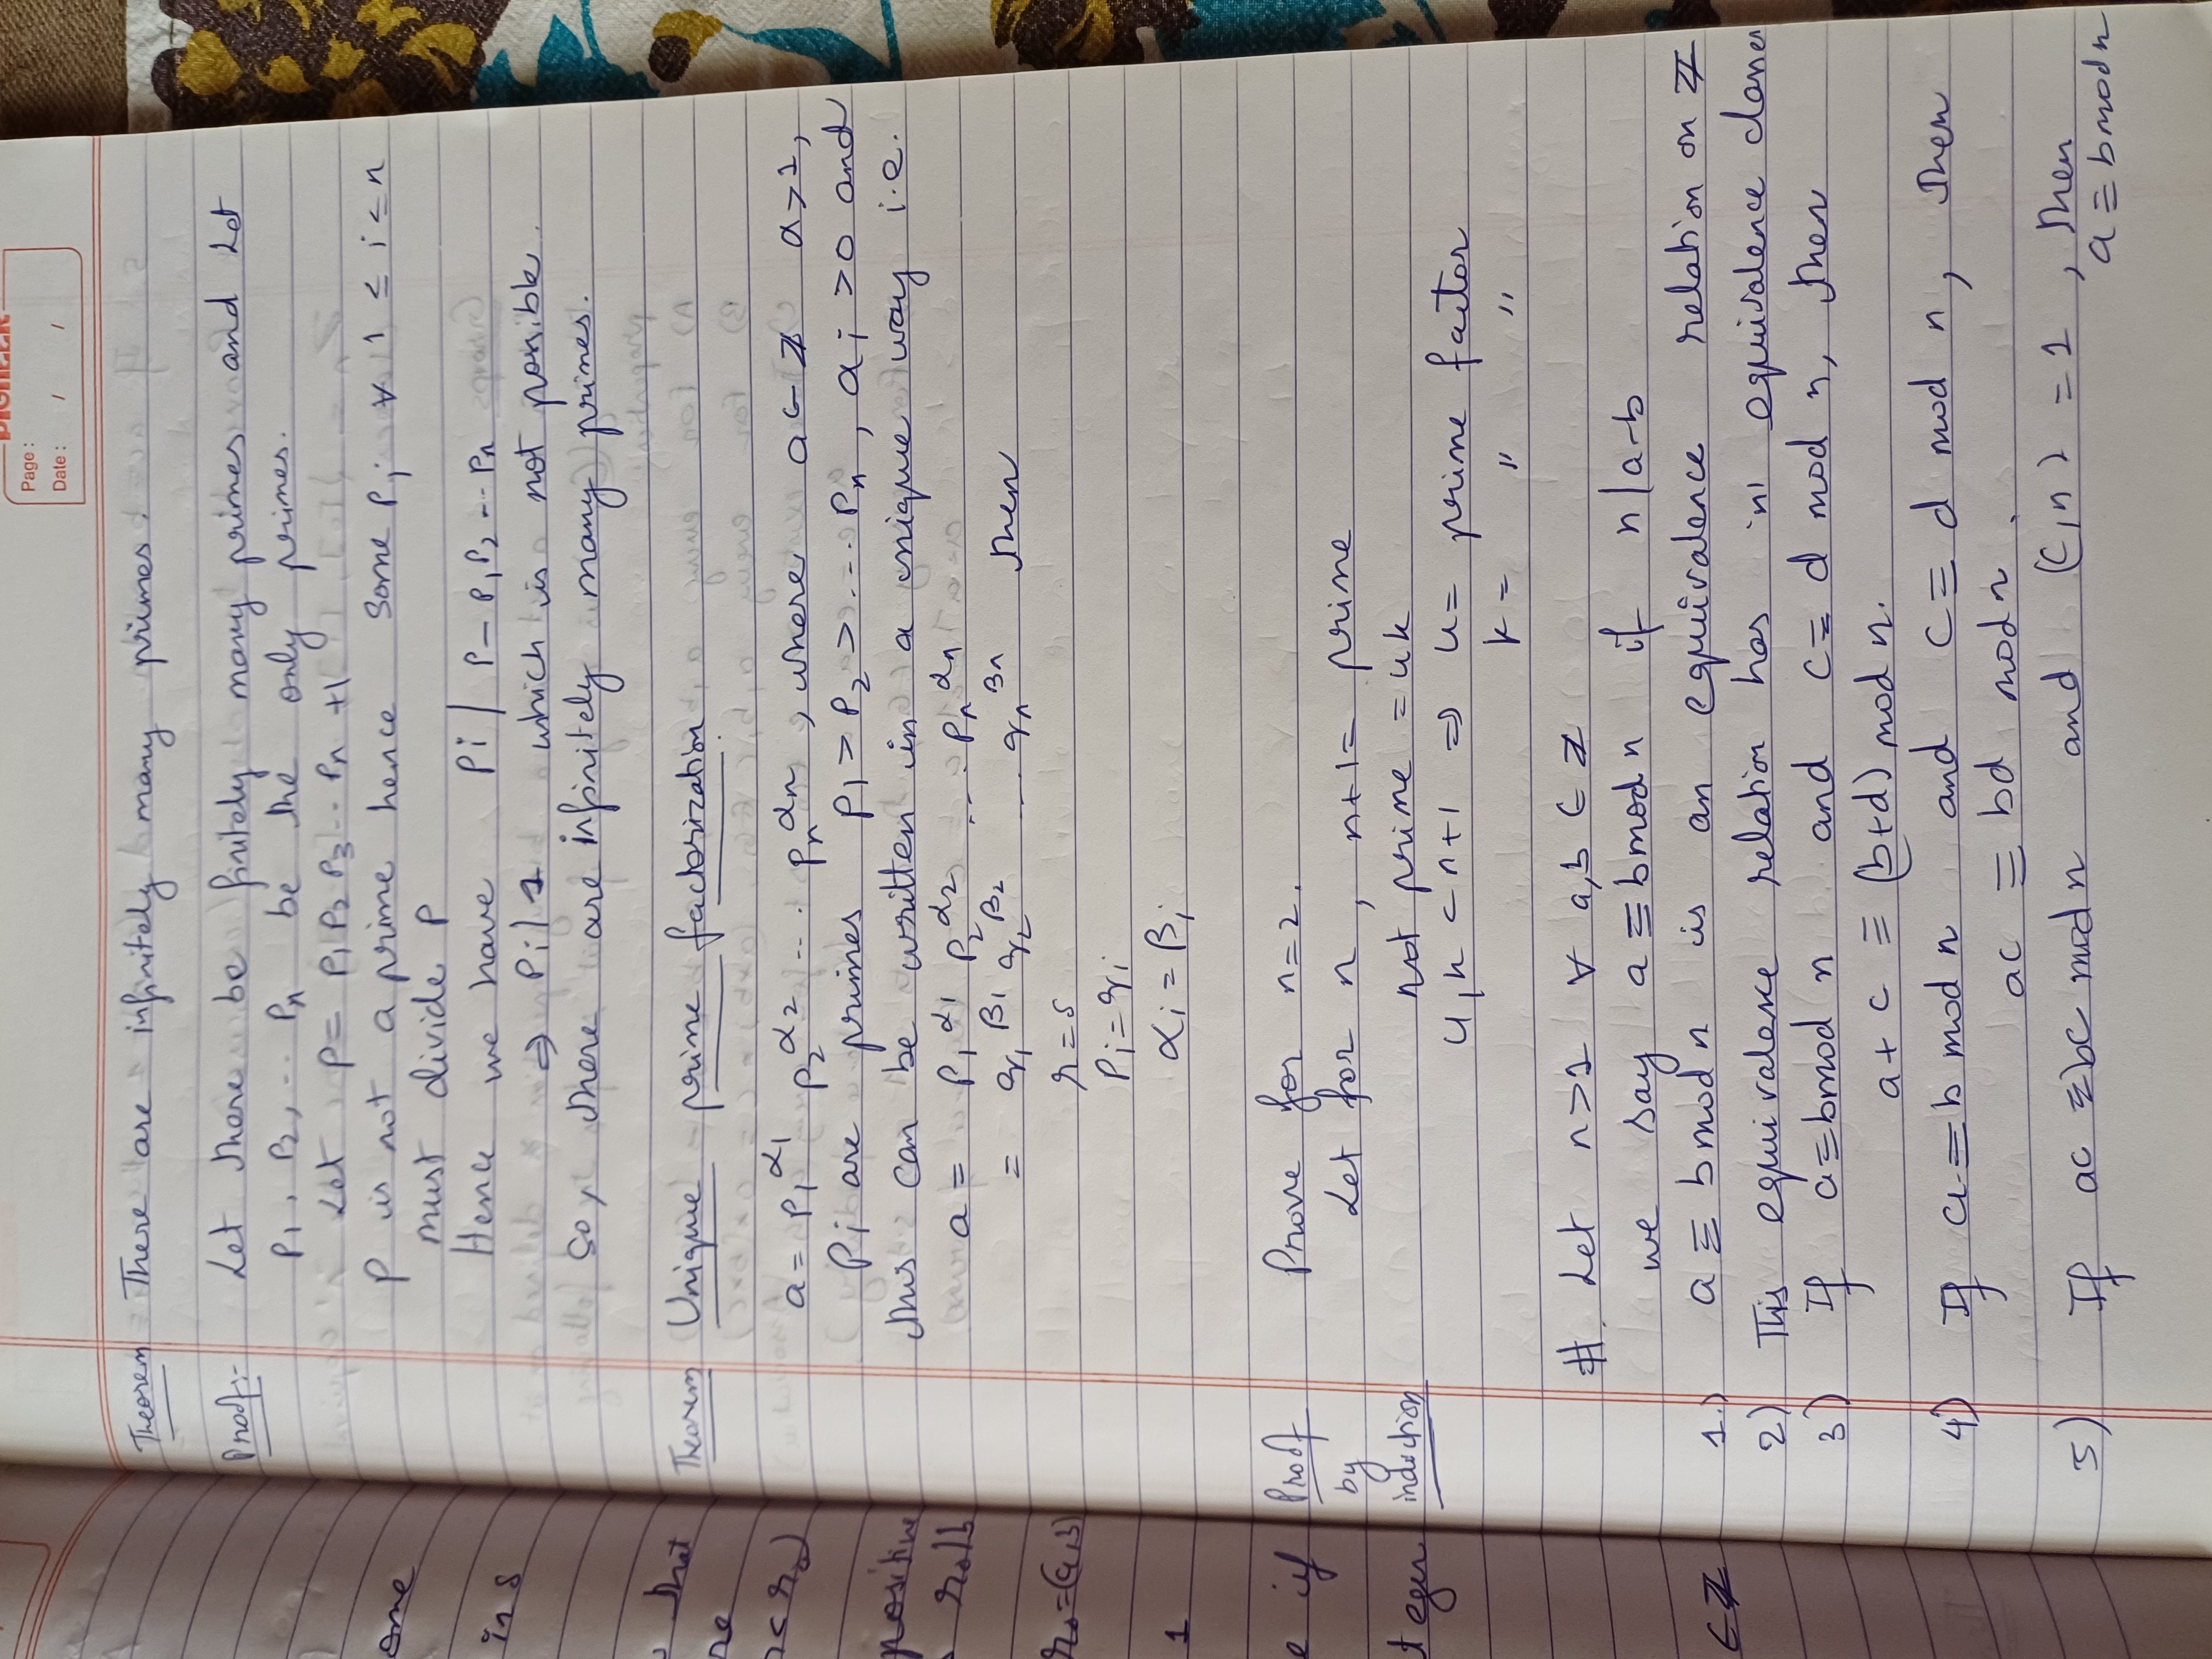 PIONEER
Page :
Date : / /
Theorem :- There are infinitely many primes.
Proof :- Let there be finitely many primes and let
P₁, P₂, ... Pₙ be the only primes.
Let P = P₁ P₂ P₃ ... Pₙ + 1
P is not a prime hence some Pᵢ ∀ 1 ≤ i ≤ n
must divide P
Hence we have Pi | P - P₁P₂ ... Pₙ
⇒ Pi | 1 which is not possible.
So, there are infinitely many primes.
Theorem Unique prime factorization
a = P₁^α₁ P₂^α₂ ... Pₙ^αₙ, where a ∈ Z a > 1,
Pi are primes P₁ > P₂ > ... Pₙ, αi > 0 and
thus can be written in a unique way i.e.
a = P₁^α₁ P₂^α₂ ... Pₙ^αₙ
= q₁^β₁ q₂^β₂ ... qₙ^βₙ then
r = s
Pi = qi
αi = βi
Proof Prove for n = 2.
by Let for n, n+1 = prime
induction not prime = uk
u, k < n+1 ⇒ u = prime factor
k = " "
#. Let n > 1 ∀ a, b ∈ Z
we say a ≡ b mod n if n | a-b
1.) a ≡ b mod n is an equivalence relation on Z
2) This equivalence relation has 'n' equivalence classes
3) If a ≡ b mod n and c ≡ d mod n, then
a + c ≡ (b+d) mod n.
4) If a ≡ b mod n and c ≡ d mod n, then
ac ≡ bd mod n.
5) If ac ≡ bc mod n and (c, n) = 1, then
a ≡ b mod n
in s
that
positive
1
e if
teger
∈ Z